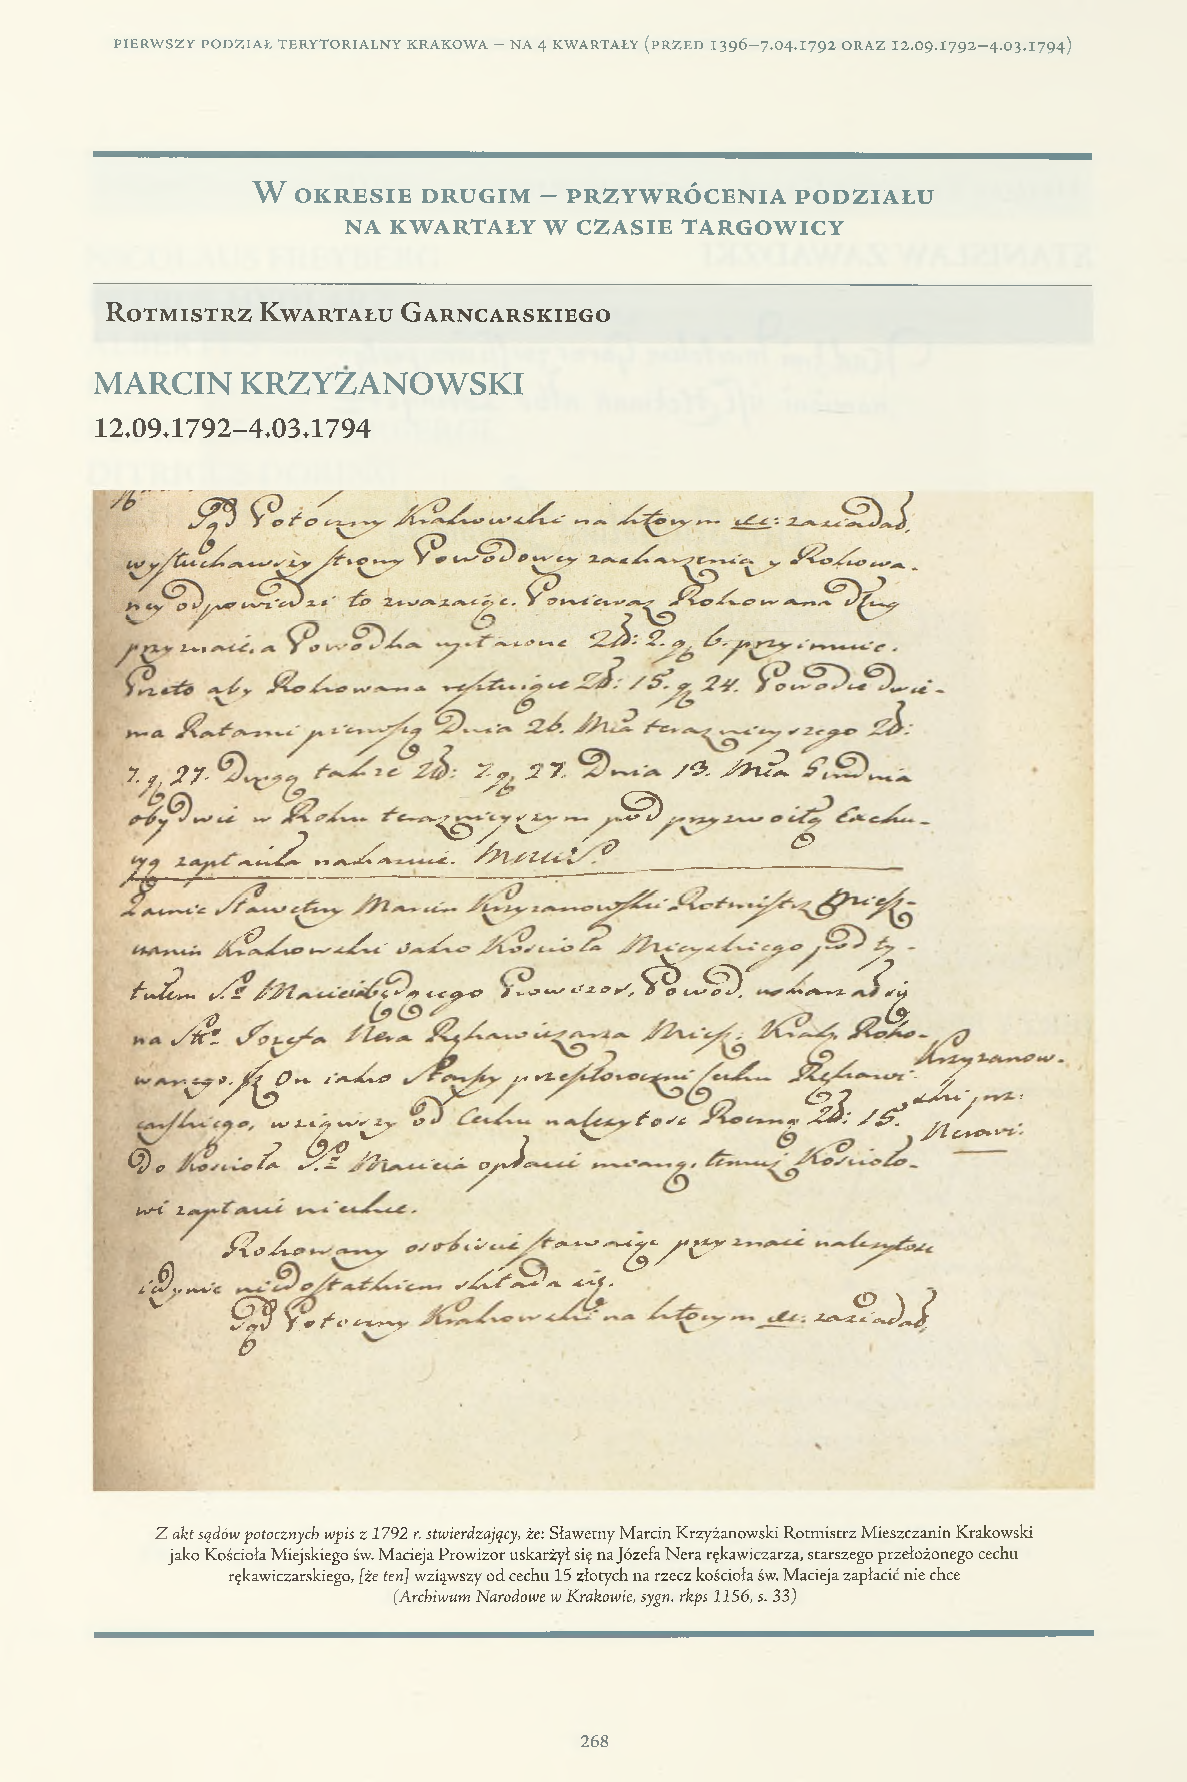 PIERWSZY PODZIAŁ TERYTORIALNY KRAKOWA – NA 4 KWARTAŁY (PRZED 1396–7.04.1792 ORAZ 12.09.1792–4.03.1794)
W OKRESIE DRUGIM – PRZYWRÓCENIA PODZIAŁU
NA KWARTAŁY W CZASIE TARGOWICY
ROTMISTRZ KWARTAŁU GARNCARSKIEGO
MARCIN KRZYŻANOWSKI
12.09.1792–4.03.1794
Sąd Potoczny Krakowski na którym etc: zasiadał,
wysłuchawszy strony Powodowey zaskarzenia y Rokowa-
ney odpowiedzi to zwazaiąc. Poniewaz Rokowana dług
przyznaie, a Powodka wypłacone Zł: 2. g. 6. przyimuie.
Przeto aby Rokowana resztuiące Zł: 15. g. 24. Powodce dwie-
ma Ratami pierwszą Dnia 26. Mca teraznieyszego Zł:
7. g. 27. Drugą takze Zł: 7. g. 27. Dnia 13. Mca Grudnia
obydwie w Roku teraznieyszym pod przyzwoitą Exeku-
cyą zapłaciła nakazuie.
Sławetny Marcin Krzyzanowski Rotmistrz Miesz-
czanin Krakowski iako Kościoła Mieyskiego pod ty-
tułem S.º Macieia będącego Prowizor, Powod. uskarzał się
na Józefa Nera Rękawicznika Miesz: Krak: Roko-
wanego. Jz On iako Starszy przełozony Cechu Rękawi-
czniskiego, wziąwszy od Cechu nalezytosc Roczną Zł: 15.
Krzyzanow-
ski prz:
Nerowi.
Do Kościoła S.º Macieia opłacać mianą, temuz Kościoło-
wi zapłacić nie chce.
Rokowany osobiscie stawaiąc przyznaie nalezytosc
iedynie niedostatkiem składa się.
Sąd Potoczny Krakowski na którym etc: zasiadał,
Z akt sądów potocznych wpis z 1792 r. stwierdzający, że: Sławetny Marcin Krzyżanowski Rotmistrz Mieszczanin Krakowski
jako Kościoła Miejskiego św. Macieja Prowizor uskarżył się na Józefa Nera rękawiczarza, starszego przełożonego cechu
rękawiczarskiego, [że ten] wziąwszy od cechu 15 złotych na rzecz kościoła św. Macieja zapłacić nie chce
(Archiwum Narodowe w Krakowie, sygn. rkps 1156, s. 33)
268